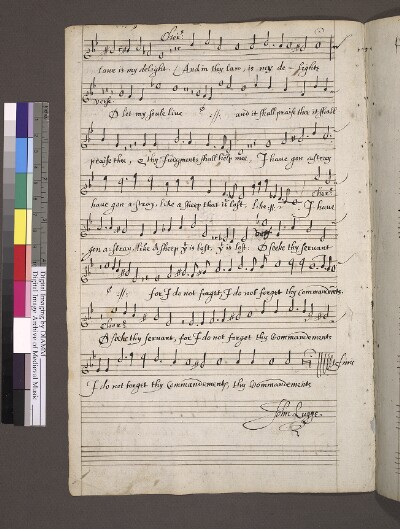 Chor:
laue is my delight. And in thy law, is my de - light
verse
O let my soule liue :ll: and it shall praise thee it shall
praise thee, & thy Judgments shall help me. I haue gon astray
Chor:
haue gon astray, like a sheep that is lost. like :ll: I haue
gon astray like a sheep yt is lost, yt is lost. O seeke thy seruant
:ll: for I do not forget, I do not forget thy Commandments
Chor:
O seeke thy seruant, for I do not forget thy Commandements
finis
I do not forget thy Commandements, thy Commandements
John Lugge.
Digital Imaging by DIAMM
Digital Image Archive of Medieval Music